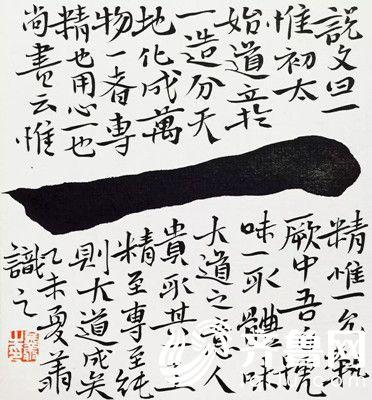 說文曰一
惟初太
始道立於
一造分天
地化成萬
物一者專
精也用心一也
尚書云惟
精惟一允執
厥中吾
味一 體味
大道之意人
貴 其一
精至專至純
則大道成矣
乙未夏
識之
齐鲁网